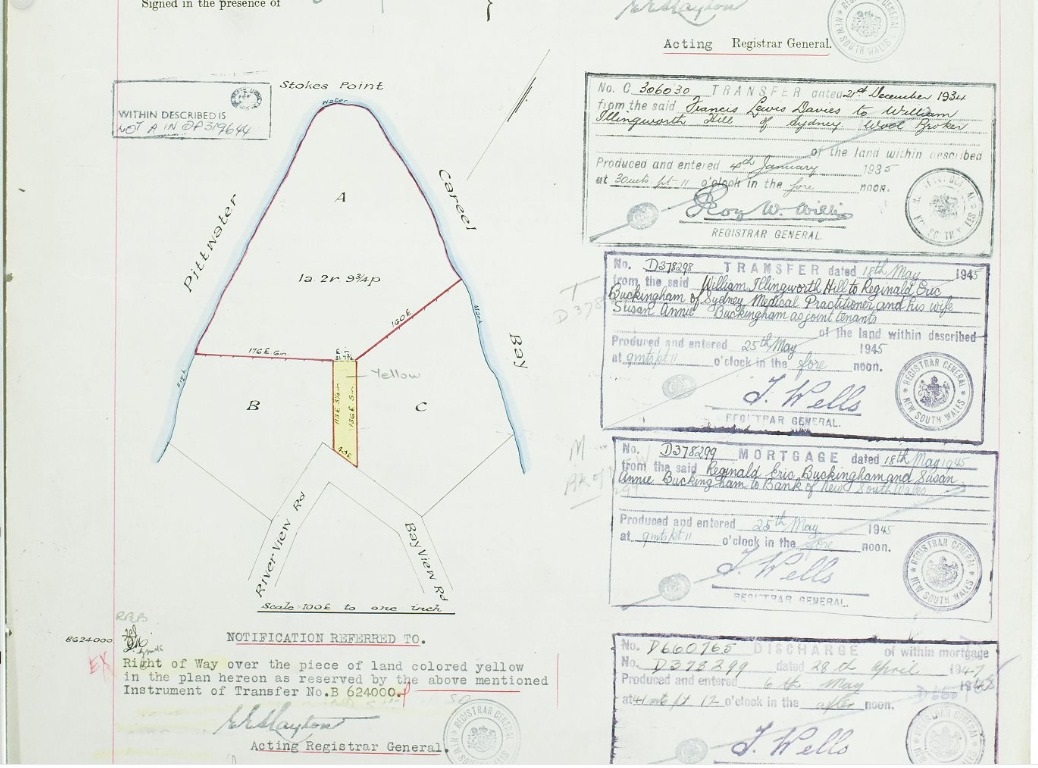 Signed in the presence of
Acting Registrar General.
Stokes Point
Water
WITHIN DESCRIBED IS
NOT A IN DP319644
Pittwater
Careel
Bay
A
1a 2r 9¾p
160E
176E 6in
Yellow
B
C
RiverView Rd
BayView Rd
Scale 100E to one inch
NOTIFICATION REFERRED TO.
RRB
B624000
EX
Right of Way over the piece of land colored yellow
in the plan hereon as reserved by the above mentioned
Instrument of Transfer No.B 624000.
Acting Registrar General.
No. C 306030 TRANSFER dated 21st December 1934
from the said Francis Lewis Davies to William
Illingworth Hill of Sydney Wool Broker
of the land within described
Produced and entered 4th January 1935
at 30mts pt 11 o'clock in the fore noon.
Roy W. Willis
REGISTRAR GENERAL.
No. D378298 TRANSFER dated 18th May 1945
from the said William Illingworth Hill to Reginald Eric
Buckingham of Sydney Medical Practitioner and his wife
Susan Annie Buckingham as joint tenants
of the land within described
Produced and entered 25th May 1945
at pt 11 o'clock in the fore noon.
J. Wells
REGISTRAR GENERAL.
No. D378299 MORTGAGE dated 18th May 1945
from the said Reginald Eric Buckingham and Susan
Annie Buckingham to Bank of New South Wales
Produced and entered 25th May 1945
at pt 11 o'clock in the fore noon.
J. Wells
REGISTRAR GENERAL.
No. D660765 DISCHARGE of within mortgage
No. D378299 dated 28th April 1947
Produced and entered 6th May
at pt 12 o'clock in the after noon.
J. Wells
REGISTRAR GENERAL
NEW SOUTH WALES